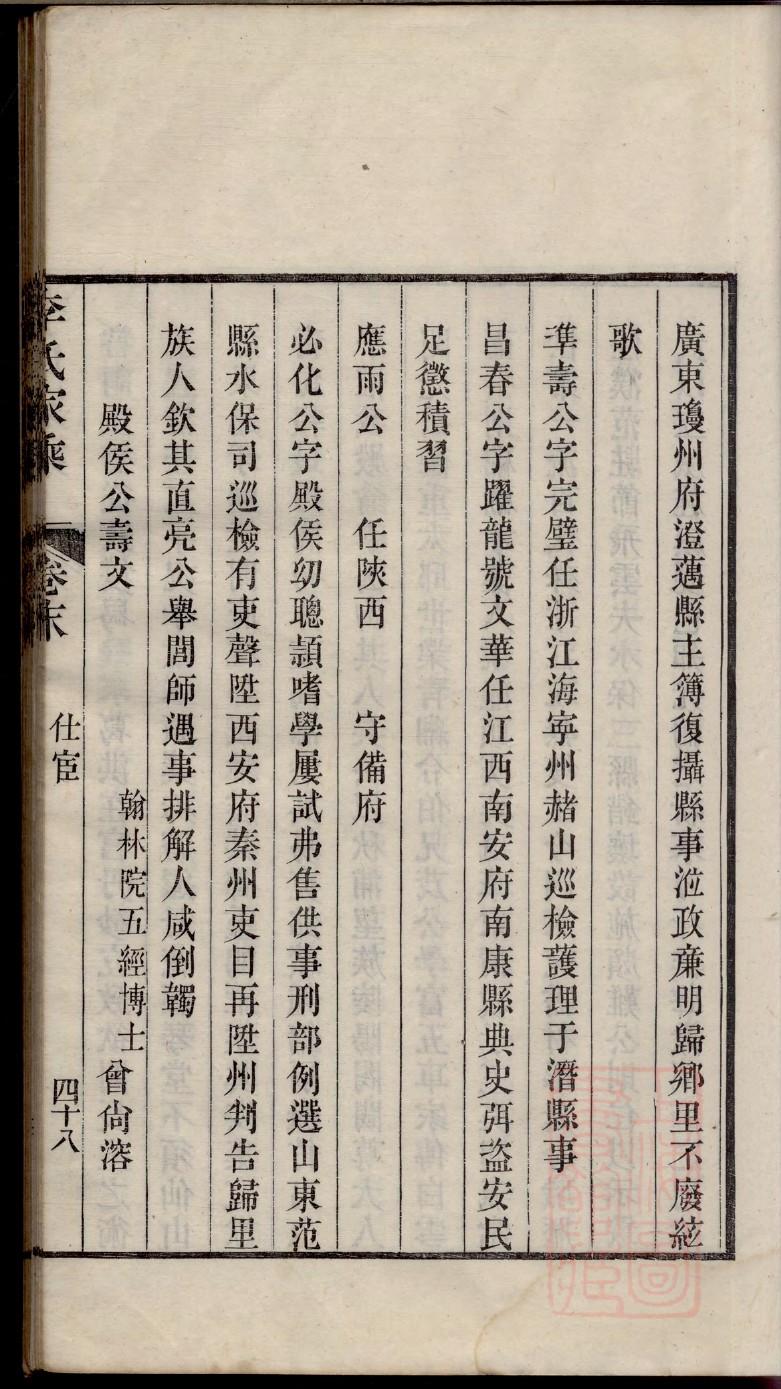 廣東瓊州府澄邁縣主簿復攝縣事涖政亷明歸鄉里不廢絃
歌
準壽公字完璧任浙江海寜州赭山巡檢護理于潛縣事
昌春公字躍龍號文華任江西南安府南康縣典史弭盜安民
足懲積習
應雨公　任陝西　守備府
必化公字殿侯幼聰頴嗜學屢試弗售供事刑部例選山東范
縣水保司巡檢有吏聲陞西安府秦州吏目再陞州判告歸里
族人欽其直亮公舉閭師遇事排解人咸倒韣
殿侯公壽文　翰林院五經博士曾尙溶
李氏家乘　卷末　仕宦　四十八